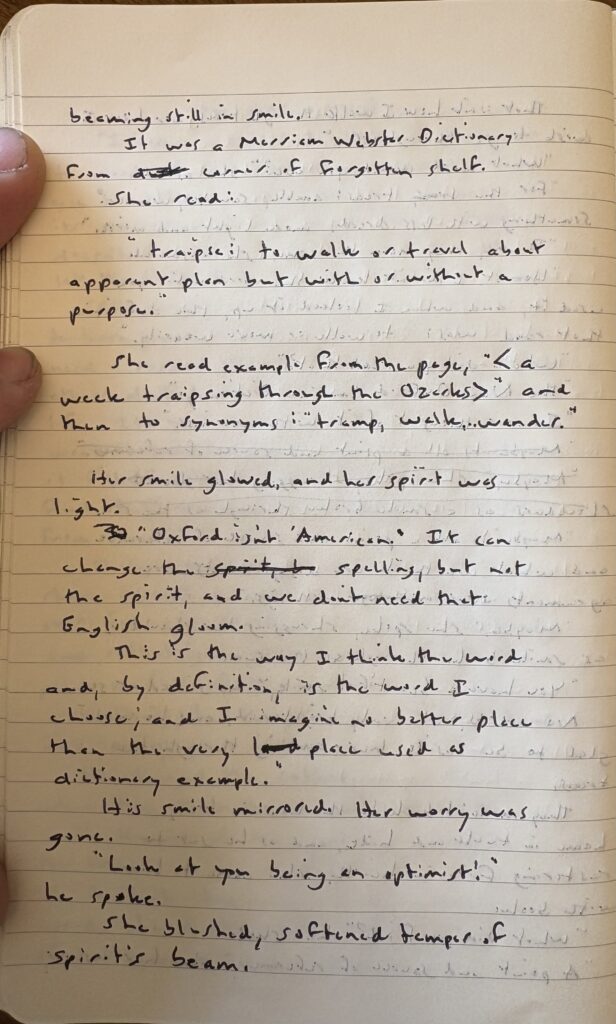 beaming still in smile.
It was a Merriam Webster Dictionary
from corner of forgotten shelf.
She read:
"traipse: to walk or travel about
apparent plan but with or without a
purpose."
She read example from the page, "<a
week traipsing through the Ozarks>" and
then to synonyms: "tramp, walk,..wander."
Her smile glowed, and her spirit was
light.
"Oxford isn't 'American.' It can
change the spirit, spelling, but not
the spirit, and we don't need that
English gloom.
This is the way I think the word
and, by definition, is the word I
choose; and I imagine no better place
than the very place used as
dictionary example."
His smile mirrored. Her worry was
gone.
"Look at you being an optimist!"
he spoke.
She blushed, softened temper of
spirit's beam.